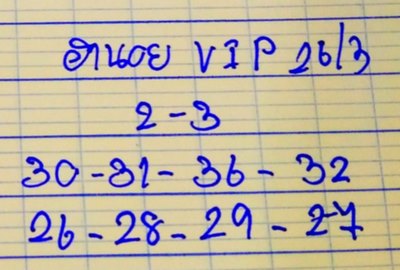 ฮานอย VIP 26/3
2-3
30-31-36-32
26-28-29-27